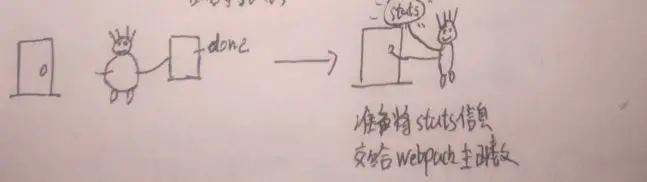 stuts
done
准备将stuts信息
交给webpack主函数